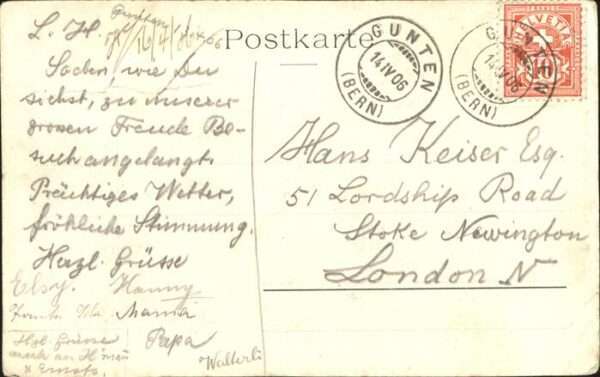 L. H.
Postkarte
Soeben, wie Du
siehst, zu unserer
grossen Freude Be-
such angelangt.
Prächtiges Wetter,
fröhliche Stimmung.
Herzl. Grüsse
Elsy. Hanny
Mama
Papa
Hzl. Grüsse
auch an
Walterli
GUNTEN
14 IV 06
(BERN)
GUNTEN
14 IV 06
(BERN)
HELVETIA
10
Hans Keiser Esq.
51 Lordship Road
Stoke Newington
London N